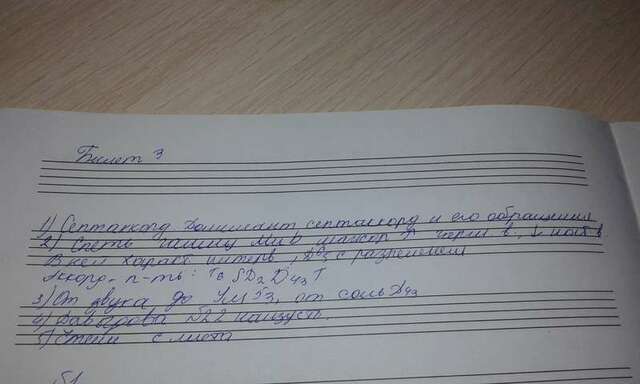 Билет 3
1) Септаккорд Доминант септаккорд и его обращения
2) Спеть гамму ми мажор ↑ ↓
В ней характ интерв, с разрешением
Аккорд. п-ть: T6 SD2 D43 T
3) От звука до Ум53, от соль D42
4) Давыдова №22 наизусть.
5) Чтение с листа